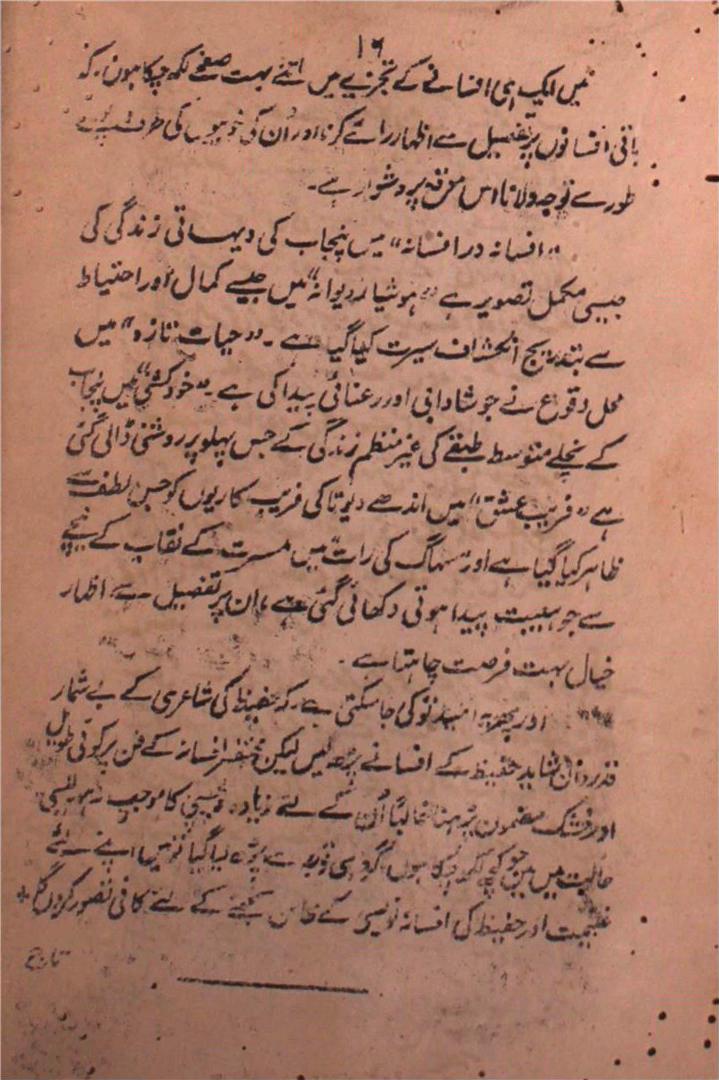 ۱۶
میں ایک ہی افسانے کے تجزیے میں اتنے بہت صفحے لکھ چکا ہوں۔ کہ
باقی افسانوں پر تفصیل سے اظہار رائے کرنا اور اُن کی خوبیوں کی طرف پورے
طور سے توجہ دلانا اس موقع پر دشوار ہے۔
"افسانہ در افسانہ" میں پنجاب کی دیہاتی زندگی کی
جیسی مکمل تصویر ہے "ہوشیار دیوانہ" میں جیسے کمال اور احتیاط
سے بتدریج انکشاف سیرت کیا گیا ہے۔ "حیات تازہ" میں
محل وقوع نے جو شادابی اور رعنائی پیدا کی ہے۔ "خودکشی" میں پنجاب
کے نچلے متوسط طبقے کی غیر منظم زندگی کے جس پہلو پر روشنی ڈالی گئی
ہے "فریب عشق" میں اندھے دیوتا کی فریب کاریوں کو جس لطف سے
ظاہر کیا گیا ہے اور "سہاگ کی رات" میں مسرت کے نقاب کے نیچے
سے جو ہیبت پیدا ہوتی دکھائی گئی ہے، ان پر تفصیل سے اظہار
خیال بہت فرصت چاہتا ہے۔
اور پھر یہ امید تو کی جا سکتی ہے۔ کہ حفیظ کی شاعری کے بے شمار
قدردان شاید حفیظ کے افسانے پڑھ لیں لیکن مختصر افسانہ کے فن پر کوئی طویل
اور خشک مضمون پڑھنا غالباً اُن کے لئے زیادہ دلچسپی کا موجب نہ ہو ایسی
حالت میں میں جو کچھ لکھ چکا ہوں اگر وہی توجہ سے پڑھ لیا گیا تو میں اپنے لئے
غنیمت اور حفیظ کی افسانہ نویسی کے محاسن سمجھنے کے لئے کافی تصور کروں گا
تاج